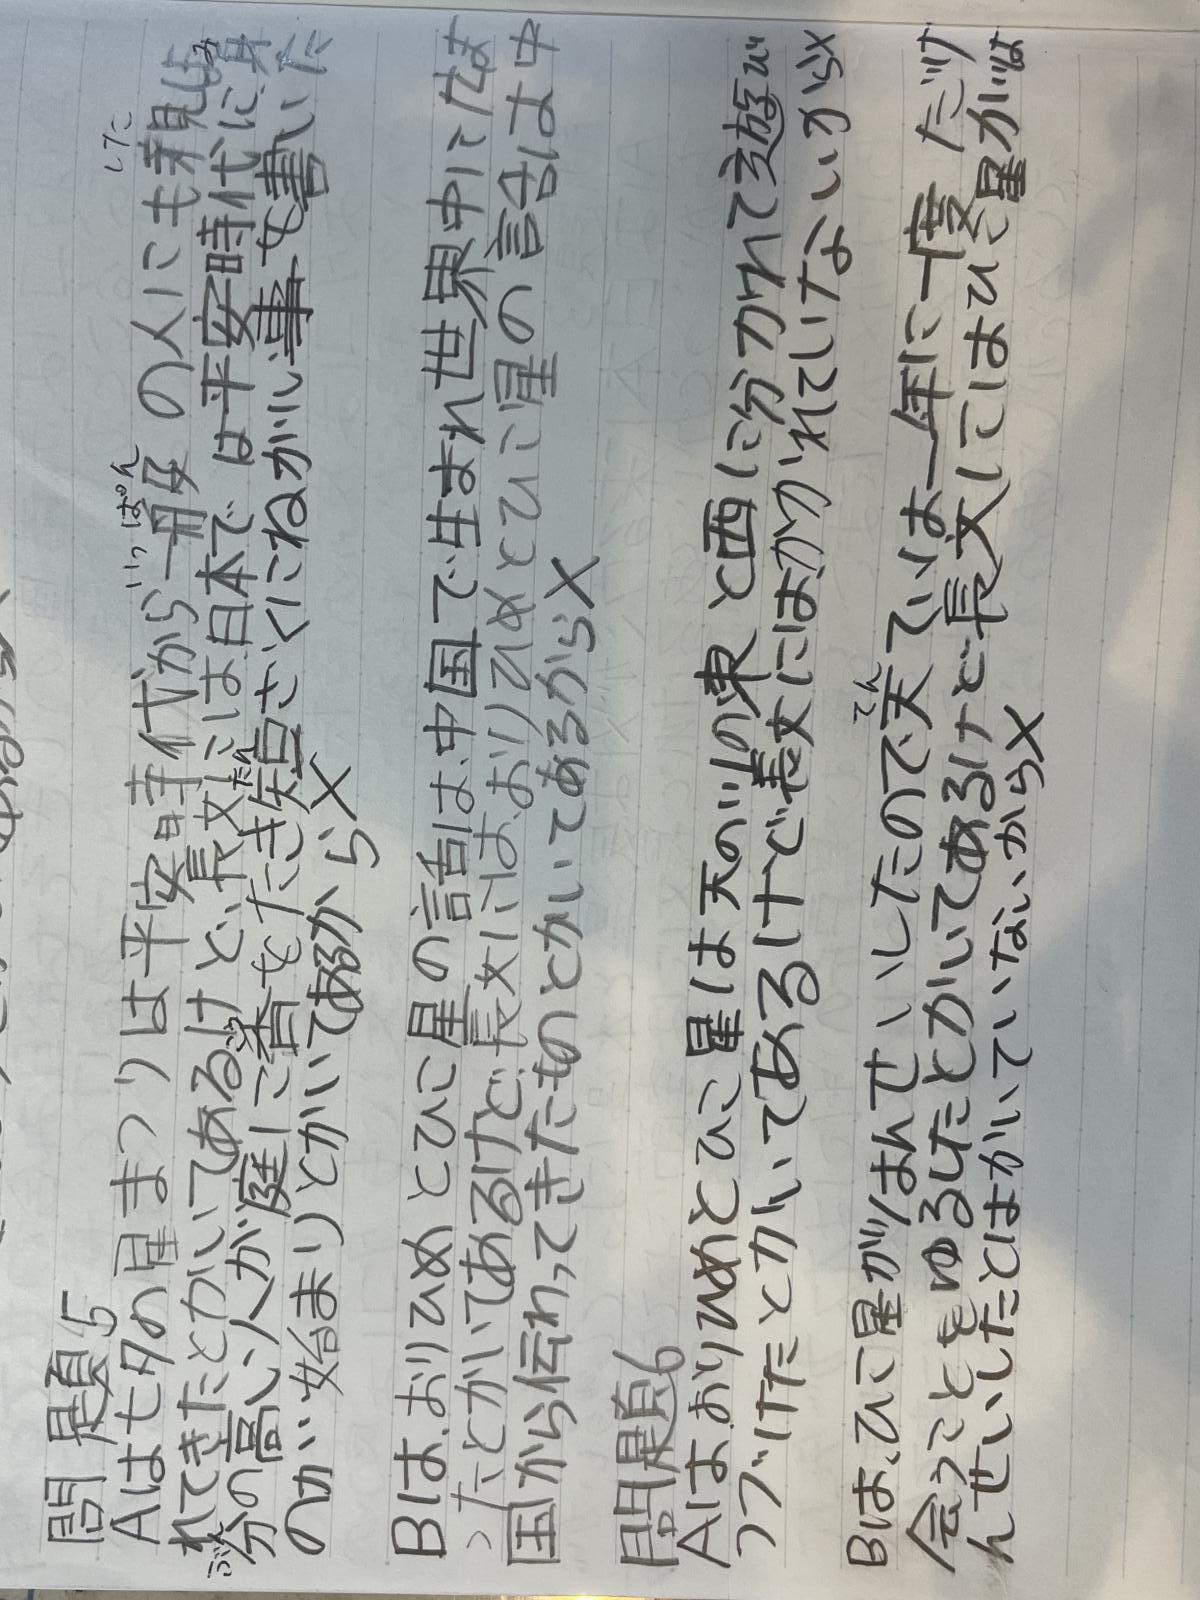 問題5
Aは七夕の星まつりは平安時代から一般の人にも親し
れてきたとかいてあるけど、長文には日本では平安時代に身
分の高い人が庭に香をたき短さくにねがい事を書いた
のが始まりとかいてあるから×
Bは、おりひめとひこ星の話は、中国で生まれ世界中に広ま
ったとかいてあるけど、長文には、おりひめとひこ星の話は中
国から伝わってきたものとかいてあるから×
問題6
Aはおりひめとひこ星は天の川の東と西に分かれて遊び
つづけたとかいてあるけど長文にはかかれていないから×
Bは、ひこ星がはんせいしたので天ていは一年に一度だけ
会うことをゆるしたとかいてあるけど長文にはひこ星がは
んせいしたとはかいていないから×